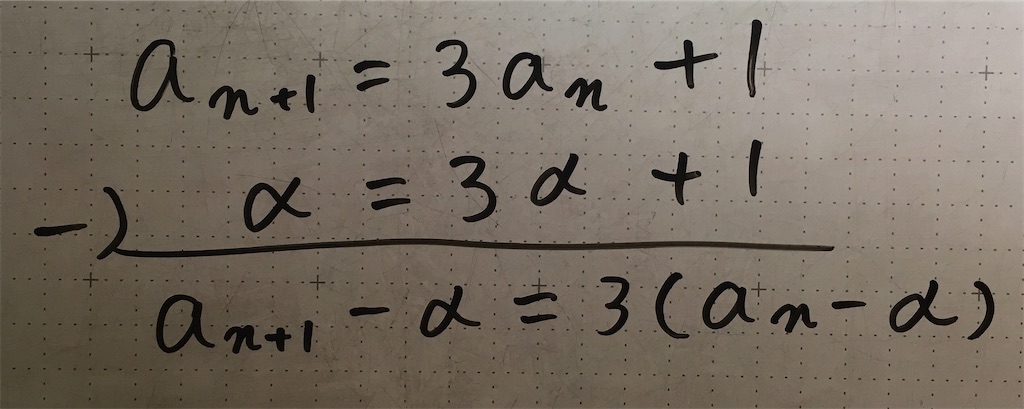 aₙ₊₁ = 3aₙ + 1
−) α = 3α + 1
aₙ₊₁ − α = 3(aₙ − α)